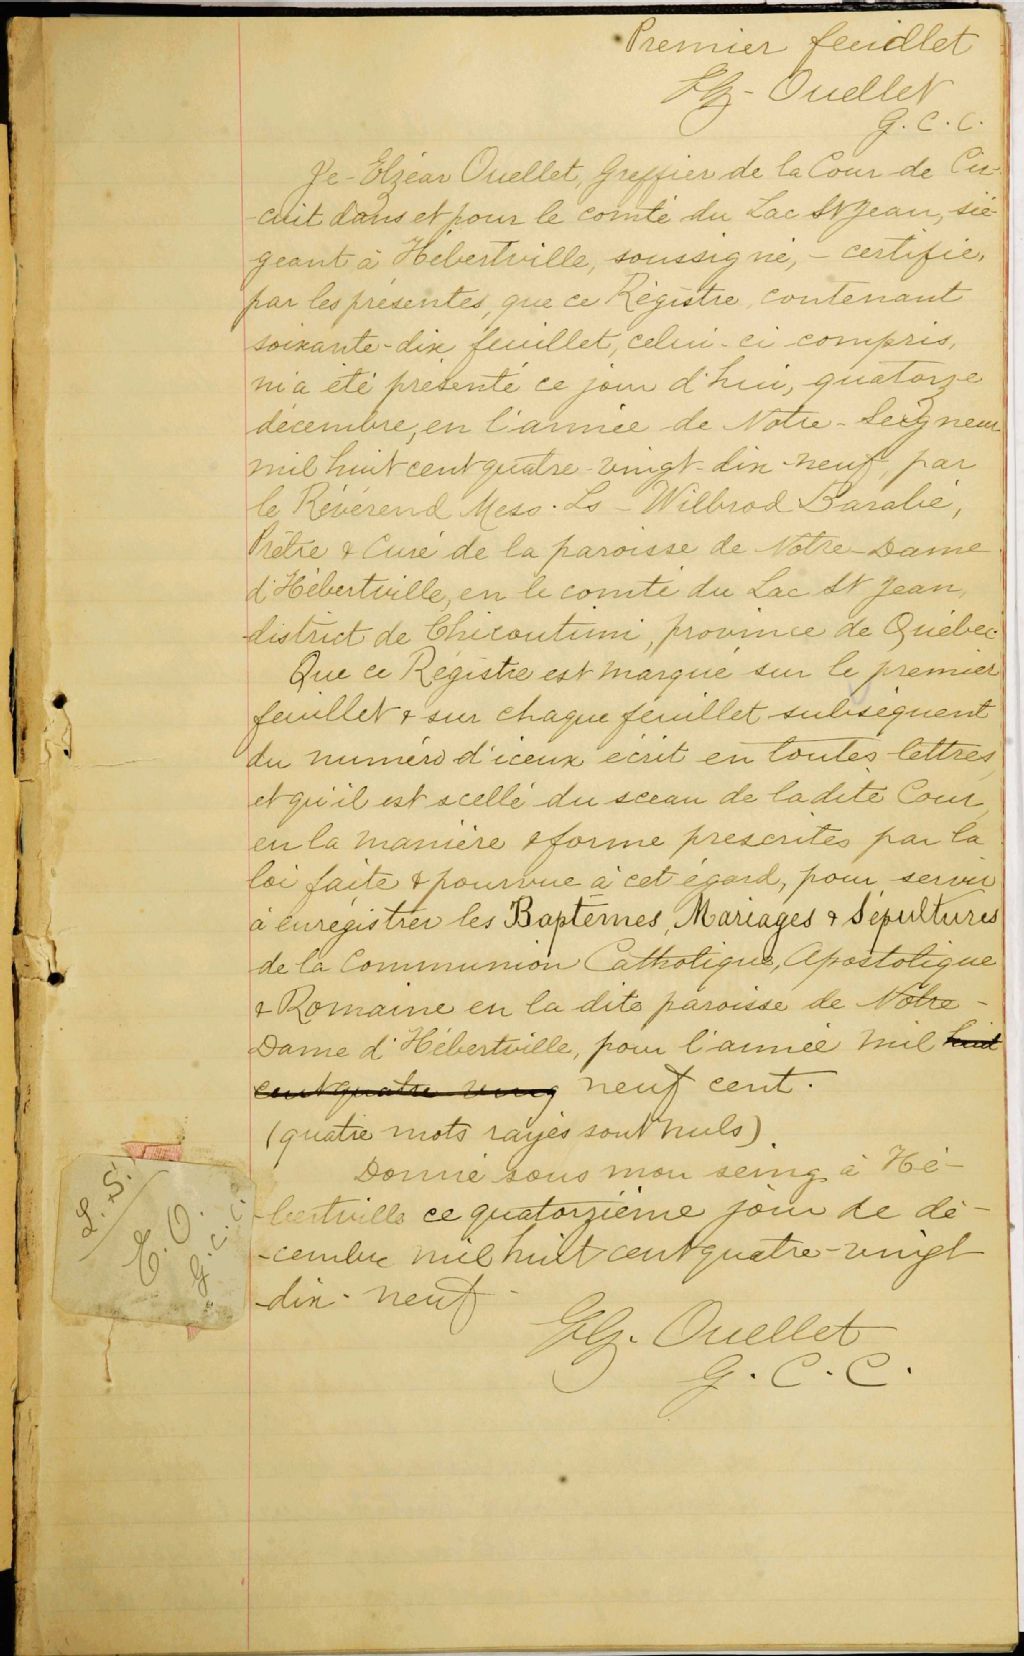 Premier feuillet
Elz - Ouellet
G. C. C.
Je - Elzéar Ouellet, Greffier de la Cour de Cir-
-cuit dans et pour le comté du Lac St Jean, sié-
geant à Hébertville, soussigné, - certifie,
par les présentes, que ce Régistre, contenant
soixante-dix feuillet, celui-ci compris,
m'a été présenté ce jour d'hui, quatorze
décembre, en l'année de Notre - Seigneur
mil huit cent quatre-vingt-dix-neuf, par
le Révérend Mess. Ls - Wilbrod Barabé,
Prêtre & Curé de la paroisse de Notre-Dame
d'Hébertville, en le comté du Lac St Jean,
district de Chicoutimi, province de Québec
Que ce Régistre est marqué sur le premier
feuillet & sur chaque feuillet subséquent
du numéro d'iceux écrit en toutes lettres,
et qu'il est scellé du sceau de ladite Cour,
en la manière & forme prescrites par la
loi faite & pourvue à cet égard, pour servir
à enrégistrer les Baptêmes, Mariages & Sépultures
de la Communion Catholique, Apostolique
& Romaine en la dite paroisse de Notre -
Dame d'Hébertville, pour l'année mil huit
cent quatre ving neuf cent.
(quatre mots rayés sont nuls).
Donné sous mon seing à Hé-
-bertville ce quatorzième jour de dé-
-cembre mil huit cent quatre-vingt
-dix-neuf -
Elz. Ouellet
G. C. C.
L. S.
E. O.
G. C. C.